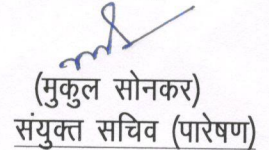 (मुकुल सोनकर)
संयुक्त सचिव (पारेषण)